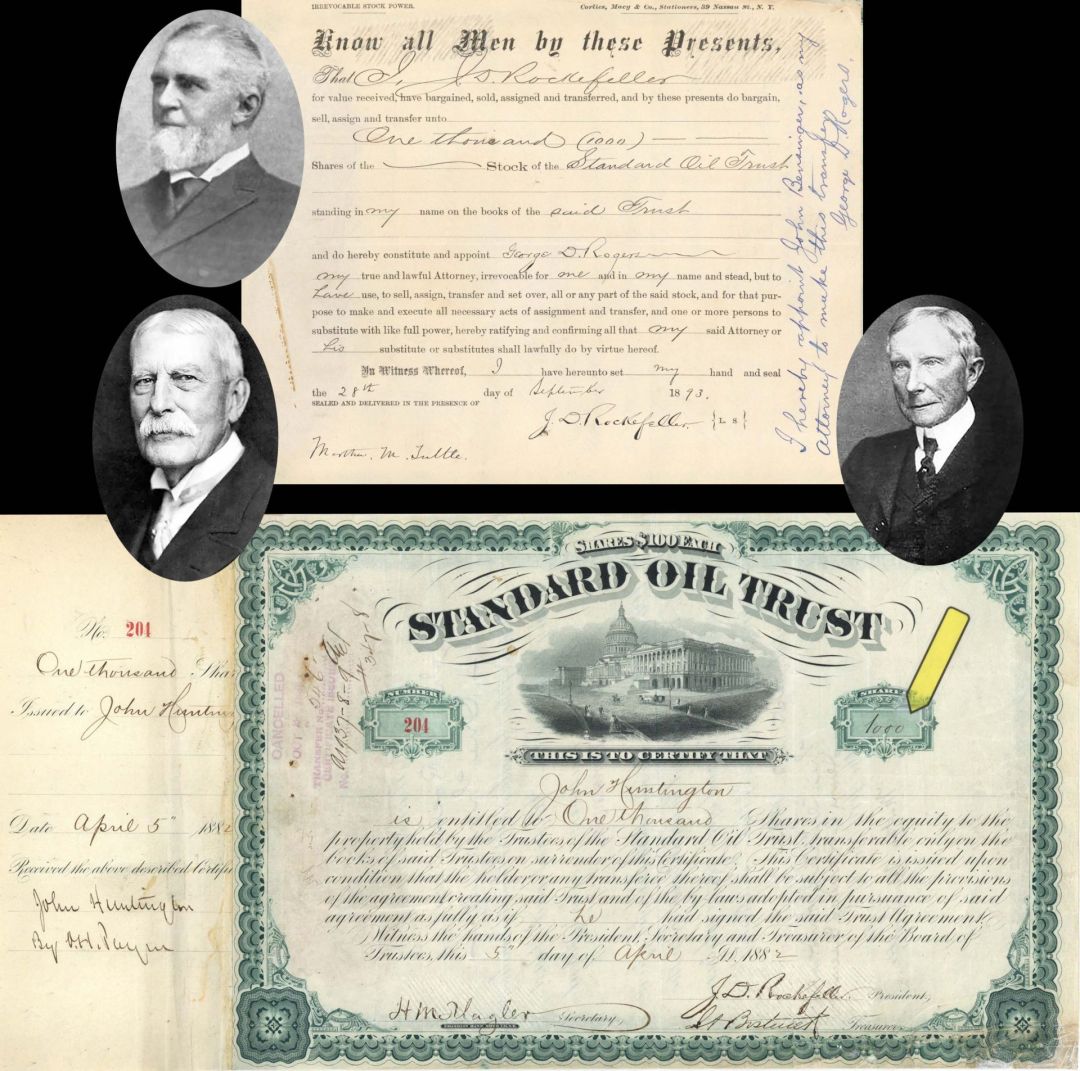 IRREVOCABLE STOCK POWER.
Corlies, Macy & Co., Stationers, 39 Nassau St., N. Y.
Know all Men by these Presents,
That I, J. D. Rockefeller
for value received, have bargained, sold, assigned and transferred, and by these presents do bargain,
sell, assign and transfer unto
One thousand (1000)
Shares of the Stock of the Standard Oil Trust
standing in my name on the books of the said Trust
and do hereby constitute and appoint George D. Rogers
my true and lawful Attorney, irrevocable for me and in my name and stead, but to
have use, to sell, assign, transfer and set over, all or any part of the said stock, and for that pur-
pose to make and execute all necessary acts of assignment and transfer, and one or more persons to
substitute with like full power, hereby ratifying and confirming all that my said Attorney or
his substitute or substitutes shall lawfully do by virtue hereof.
In Witness Whereof, I have hereunto set my hand and seal
the 28th day of September 1893.
SEALED AND DELIVERED IN THE PRESENCE OF
J. D. Rockefeller {L S}
Martha. M. Tuttle.
I hereby appoint John Bensinger, as my
Attorney to make this transfer
George D. Rogers.
No. 204
One thousand Shar
Issued to John Hunting
Date April 5" 1882
Received the above described Certifi
John Huntington
By O. H. Payne
SHARES $100 EACH
STANDARD OIL TRUST
NUMBER
204
SHARES
1000
CANCELLED
OCT
TRANSFER
CERTIFICATE
No.
THIS IS TO CERTIFY THAT
John Huntington
is entitled to One thousand Shares in the equity to the
property held by the Trustees of the Standard Oil Trust, transferable only on the
books of said Trustees on surrender of this Certificate. This Certificate is issued upon
condition that the holder or any transferee thereof shall be subject to all the provisions
of the agreement creating said Trust and of the by-laws adopted in pursuance of said
agreement as fully as if he had signed the said Trust Agreement.
Witness the hands of the President, Secretary and Treasurer of the Board of
Trustees, this 5" day of April A.D. 1882
J. D. Rockefeller President,
H M Flagler Secretary,
Treasurer